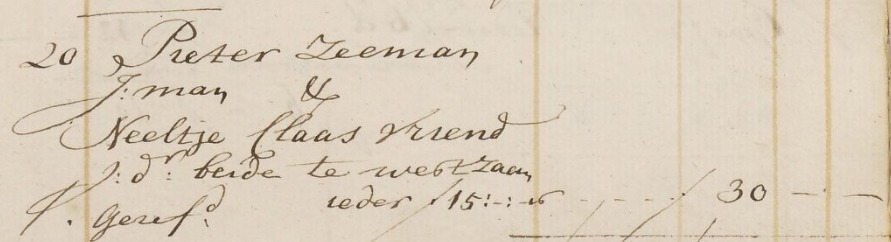 20 Pieter Zeeman
J: man &
Neeltje Claas Vriend
J: dr: beide te westzaan
ieder 15:-:- 30 - -
Geref:d